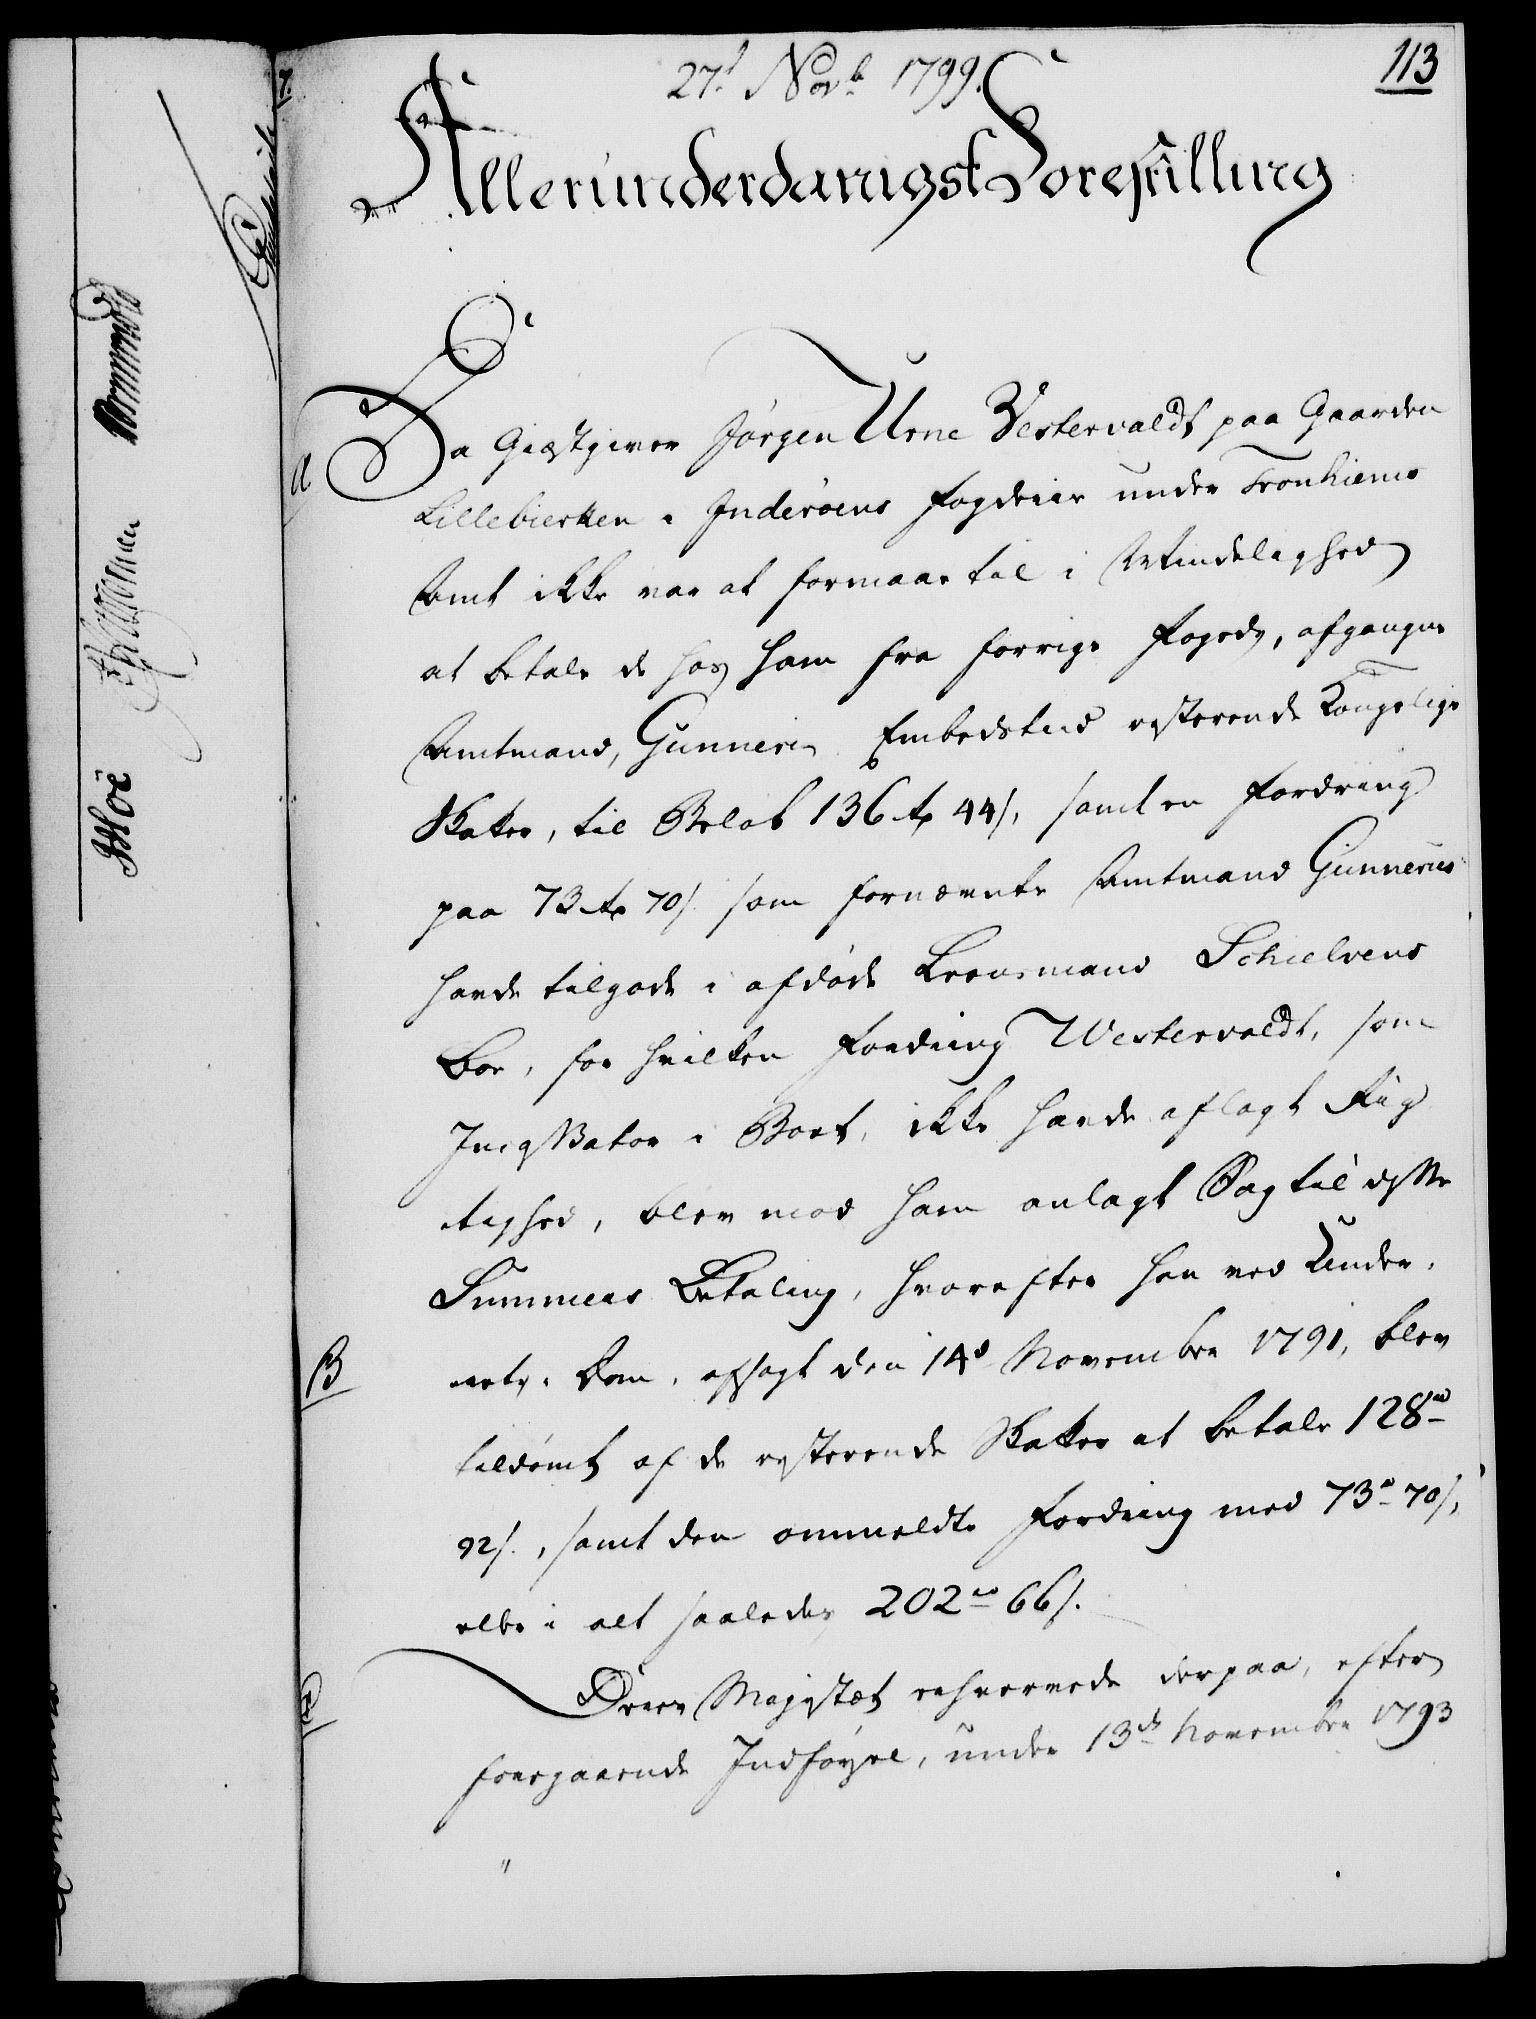 113
27d Novb 1799.
Allerunderdanigst Forestilling
A
Da Giæstgiver Jørgen Urne Vestervaldt paa Gaarden
Lillebierken i Inderøens Fogderie under Tronhiems
Amt ikke var at formaae til i Mindelighed
at betale de hos ham fra forrige Foged, afgangne
Amtmand, Gunneri Embedstid resterende Kongelige
Skatter, til Beløb 136 rd 44 s, samt en Fordring
paa 73 rd 70 s. som fornævnte Amtmand Gunnerus
havde tilgode i afdøde Lensmand Schielvens
Boe, for hvilken Fordring Westervaldt, som
Incassator i Boet, ikke havde aflagt Rig
tighed, blev mod ham anlagt Sag til disse
Summers Betaling, hvorefter han ved Under-
rets Dom, afsagt den 14d November 1791, blev
B
tildømt af de resterende Skatter at betale 128rd
92 s., samt den ommeldte Fordring med 73rd 70 s,
eller i alt saaledes 202rd 66 s.
Deres Majestæt resolverede derpaa, efter
foregaaende Indhøyre, under 13de November 1793
Moe